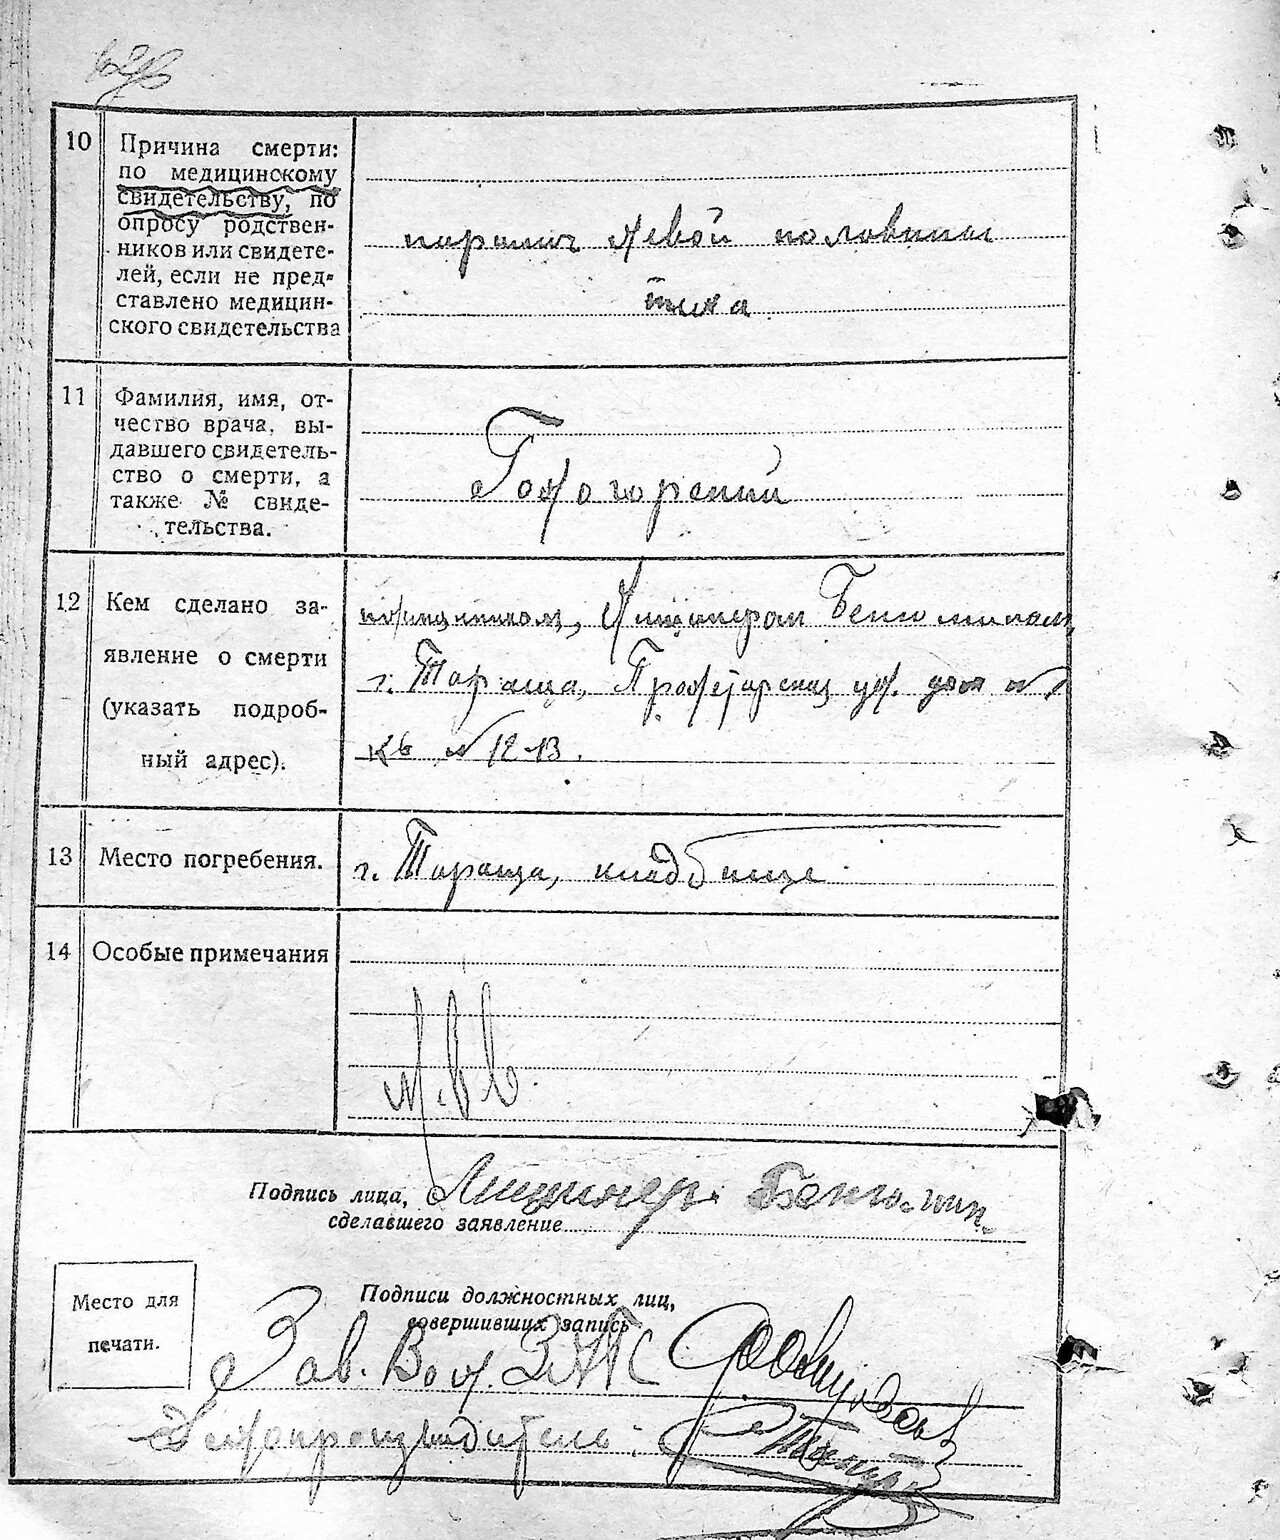 10 Причина смерти:
по медицинскому
свидетельству, по
опросу родствен-
ников или свидете-
лей, если не пред-
ставлено медицин-
ского свидетельства
паралич левой половины
тела
11 Фамилия, имя, от-
чество врача, вы-
давшего свидетель-
ство о смерти, а
также № свиде-
тельства.
12 Кем сделано за-
явление о смерти
(указать подроб-
ный адрес).
г. Тараща, Пролетарская ул. дом №
кв № 12-13.
13 Место погребения.
г. Тараща, кладбище
14 Особые примечания
Подпись лица,
сделавшего заявление
Подписи должностных лиц,
совершивших запись
Место для
печати.
Зав.
Делопроизводитель: